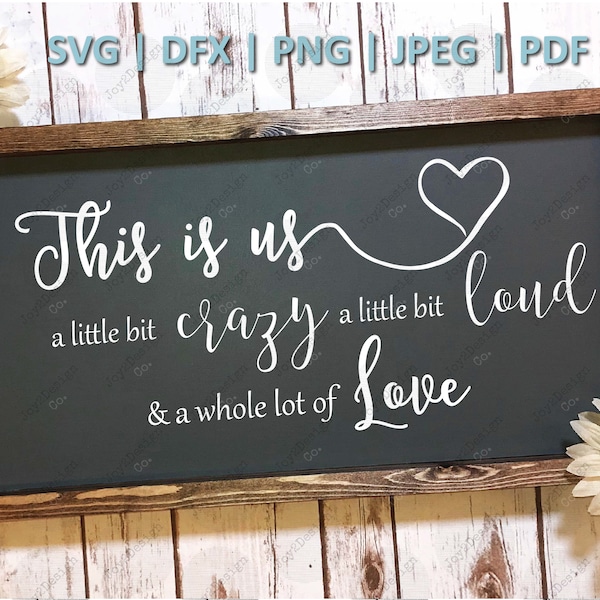 SVG | DFX | PNG | JPEG | PDF
This is us
a little bit crazy a little bit loud
& a whole lot of Love
Joy2Design Co.